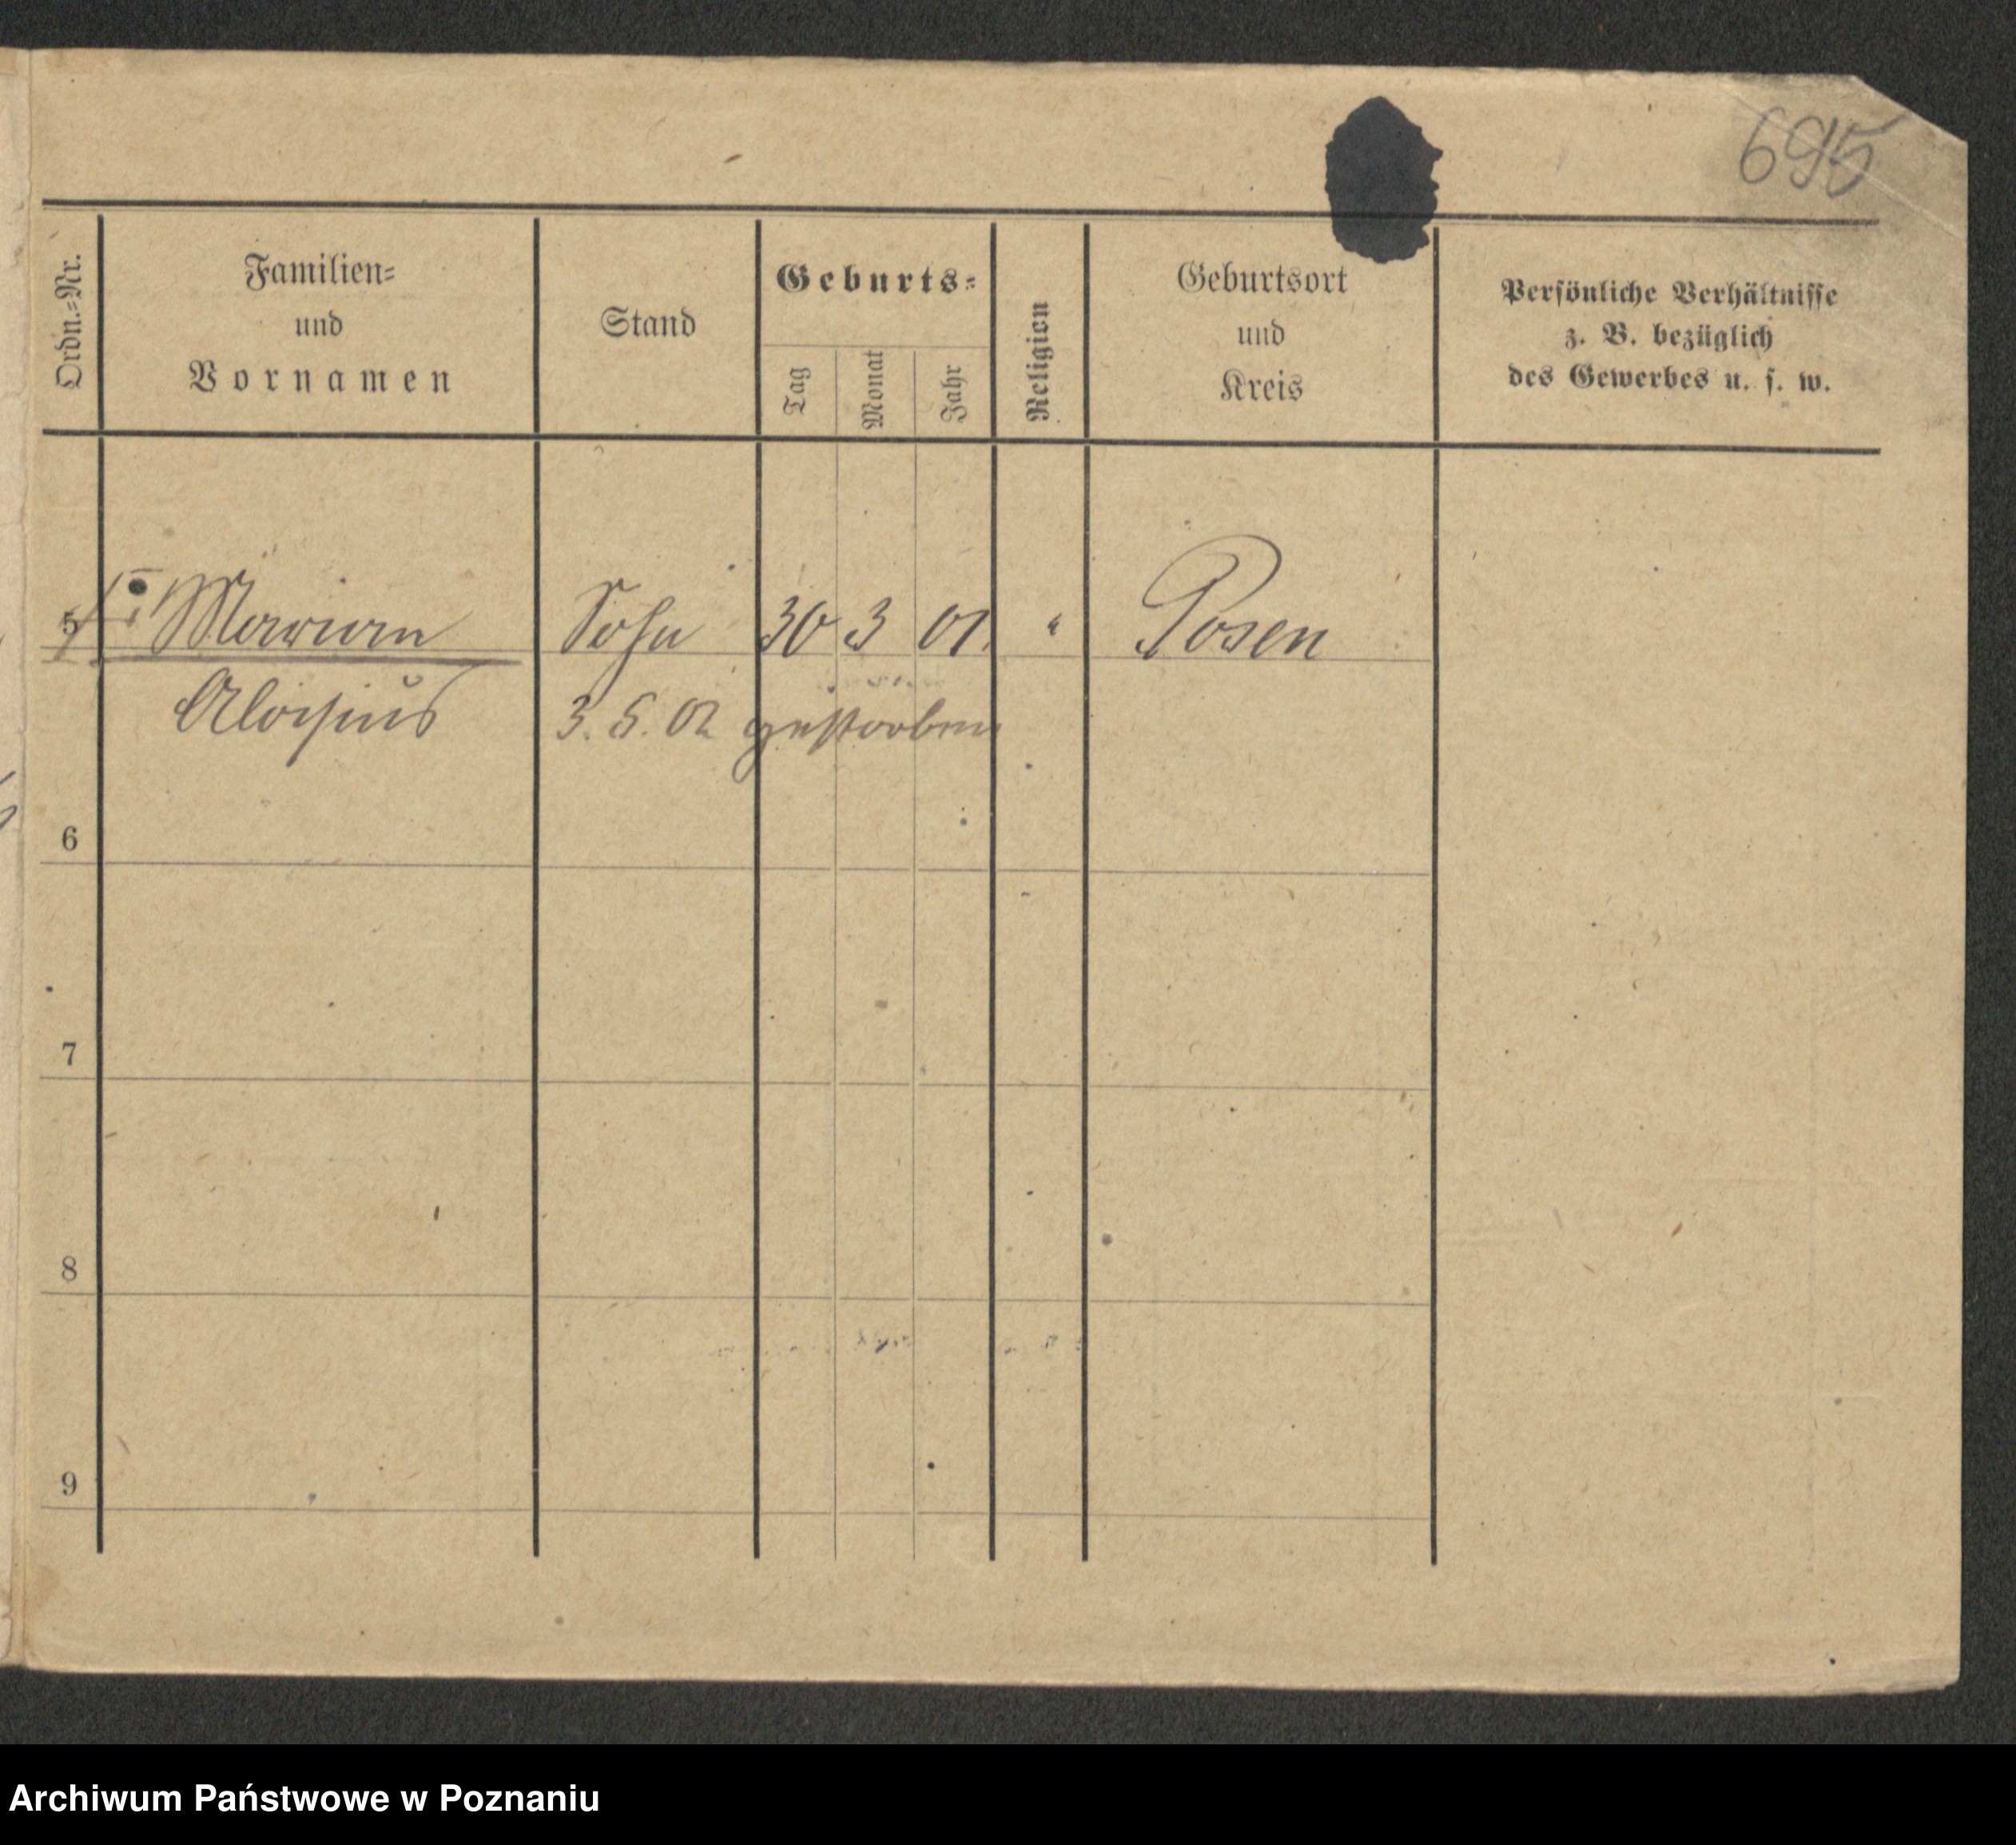 695
Ordn.-Nr.
Familien-
und
Vornamen
Stand
Geburts-
Tag
Monat
Jahr
Religion
Geburtsort
und
Kreis
Persönliche Verhältnisse
z. B. bezüglich
des Gewerbes u. s. w.
5 Marian Sohn 30 3 01. " Posen
Aloisius 3. 5. 02 gestorben
6
7
8
9
Archiwum Państwowe w Poznaniu